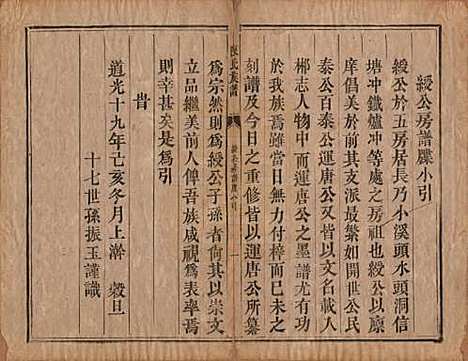 綬公房譜牒小引
綬公於五房居長乃小溪頭水頭洞信
塘冲鐵爐冲等處之房祖也綬公以廪
庠倡美於前其支派最繁如開世公民
泰公百泰公運唐公又以文名載人
郴志人物中而運唐公之墨譜尤有功
於我族焉雖當日無力付梓而已未之
刻譜及今日之重修皆以運唐公所纂
為宗然則為綬公子孫者有以崇文
立品繼美前人俾吾族咸視為表率焉
則幸甚矣是為引
昔
道光十九年己亥冬月上澣 穀旦
十七世孫振玉謹識
氏族譜
綬公房譜牒小引
一